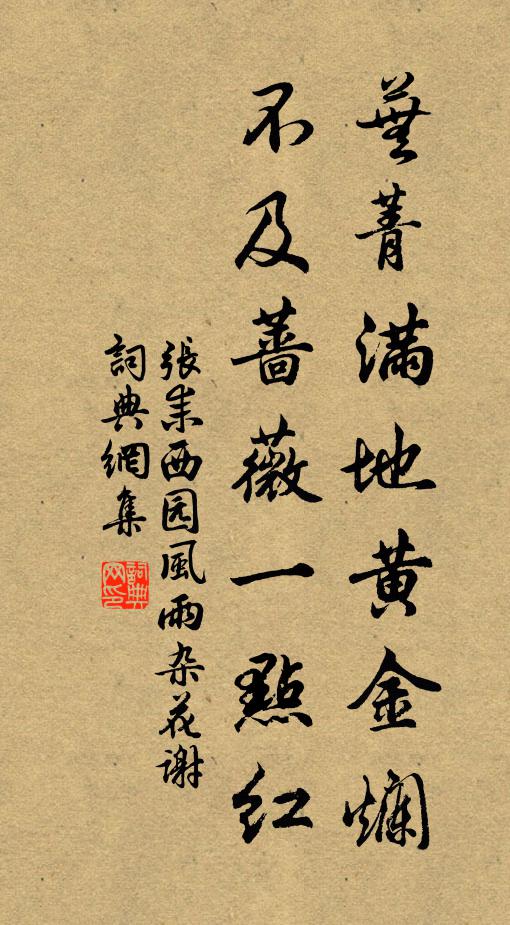 蕪菁滿地黃金爛
不及薔薇一點紅
張耒西园風雨杂花谢
詞典網集
詞典网印